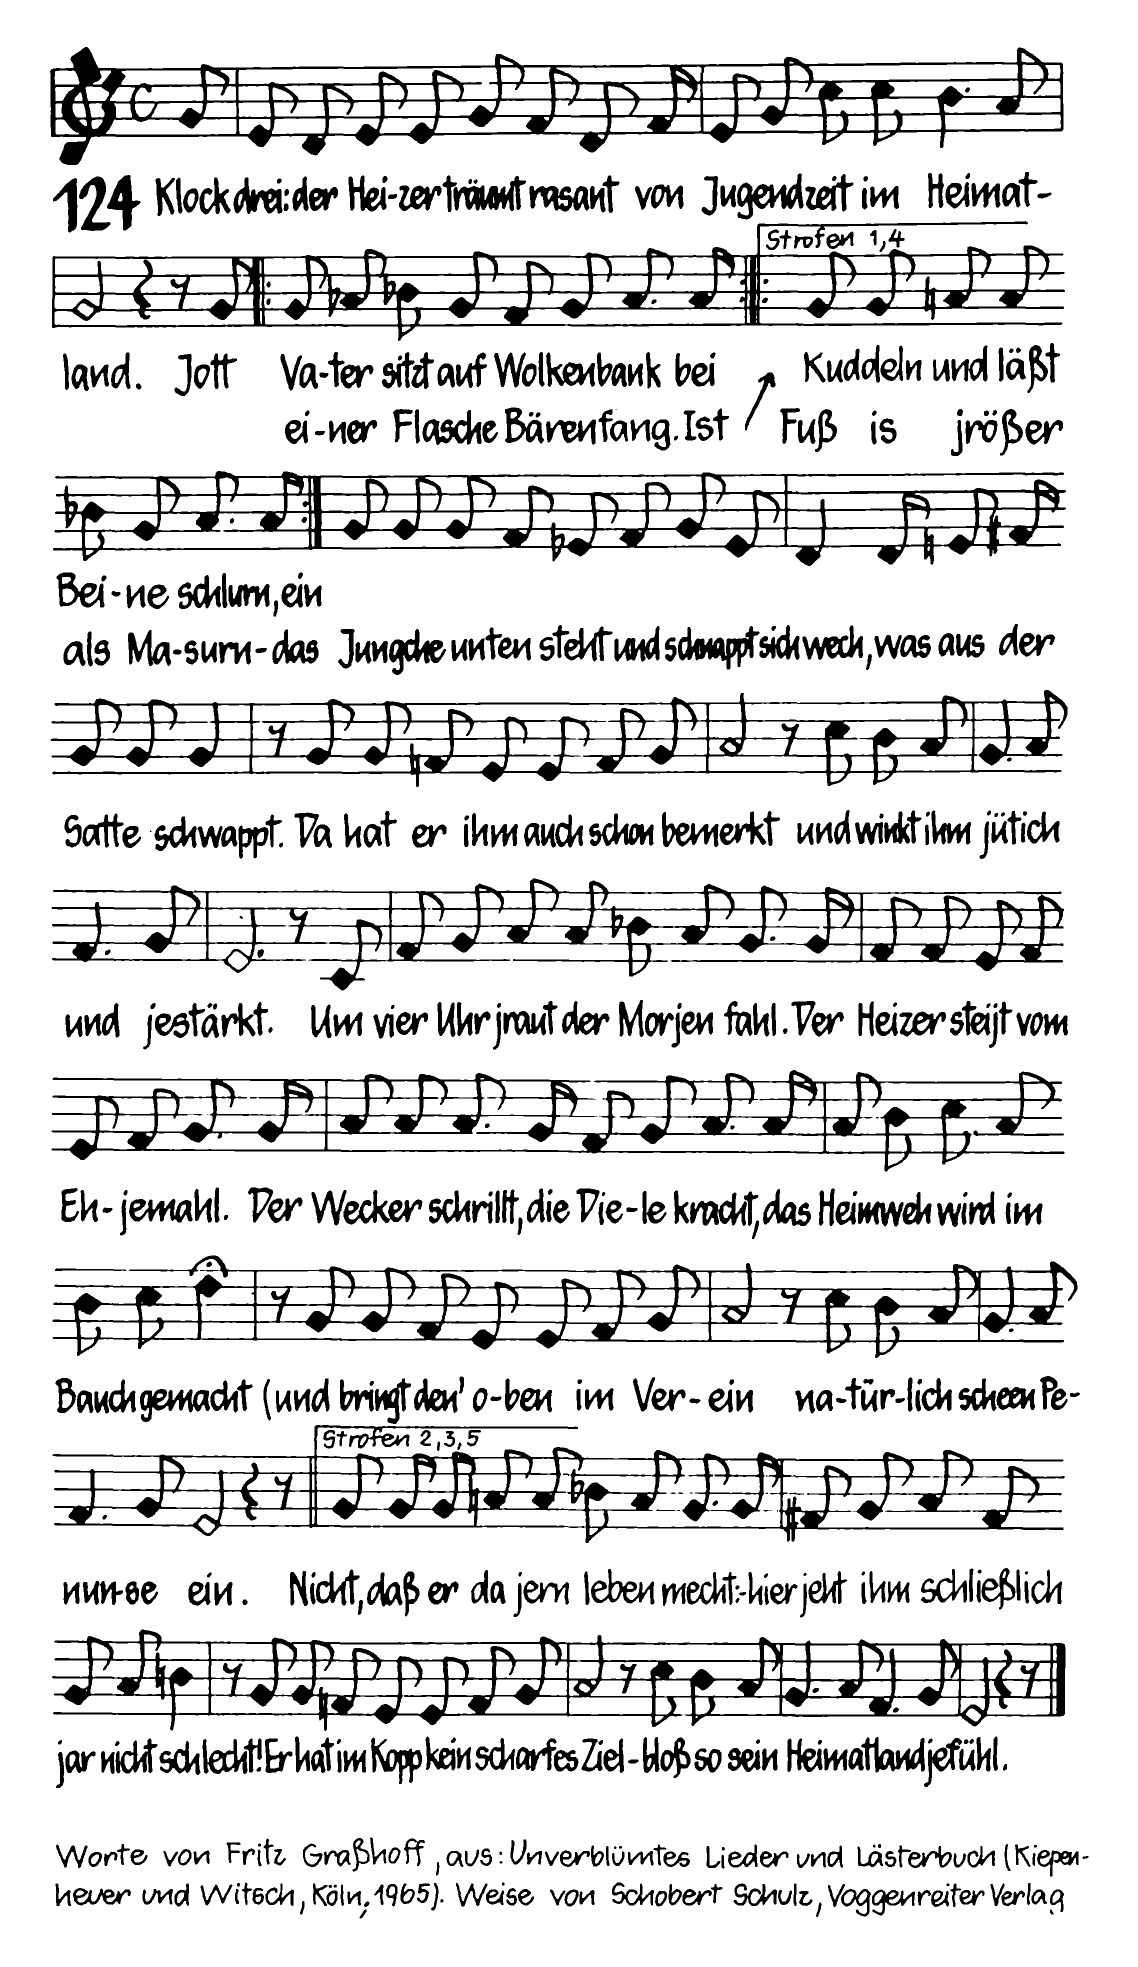 124 Klock drei: der Hei-zer träumt rasant von Jugendzeit im Heimat-
Strofen 1,4
land. Jott Va-ter sitzt auf Wolkenbank bei Kuddeln und läßt
ei-ner Flasche Bärenfang. Ist Fuß is jrößer
Bei-ne schlurn, ein
als Ma-surn-das Jungche unten steht und schnappt sich wech, was aus der
Satte schwappt. Da hat er ihm auch schon bemerkt und winkt ihm jütich
und jestärkt. Um vier Uhr jraut der Morjen fahl. Der Heizer steijt vom
Eh-jemahl. Der Wecker schrillt, die Die-le kracht, das Heimweh wird im
Bauch gemacht (und bringt den' o-ben im Ver-ein na-tür-lich scheen Pe-
Strofen 2,3,5
nun-se ein. Nicht, daß er da jern leben mecht:-hier jeht ihm schließlich
jar nicht schlecht! Er hat im Kopp kein scharfes Ziel-bloß so sein Heimatlandjefühl.
Worte von Fritz Graßhoff, aus: Unverblümtes Lieder und Lästerbuch (Kiepen-
heuer und Witsch, Köln, 1965). Weise von Schobert Schulz, Voggenreiter Verlag